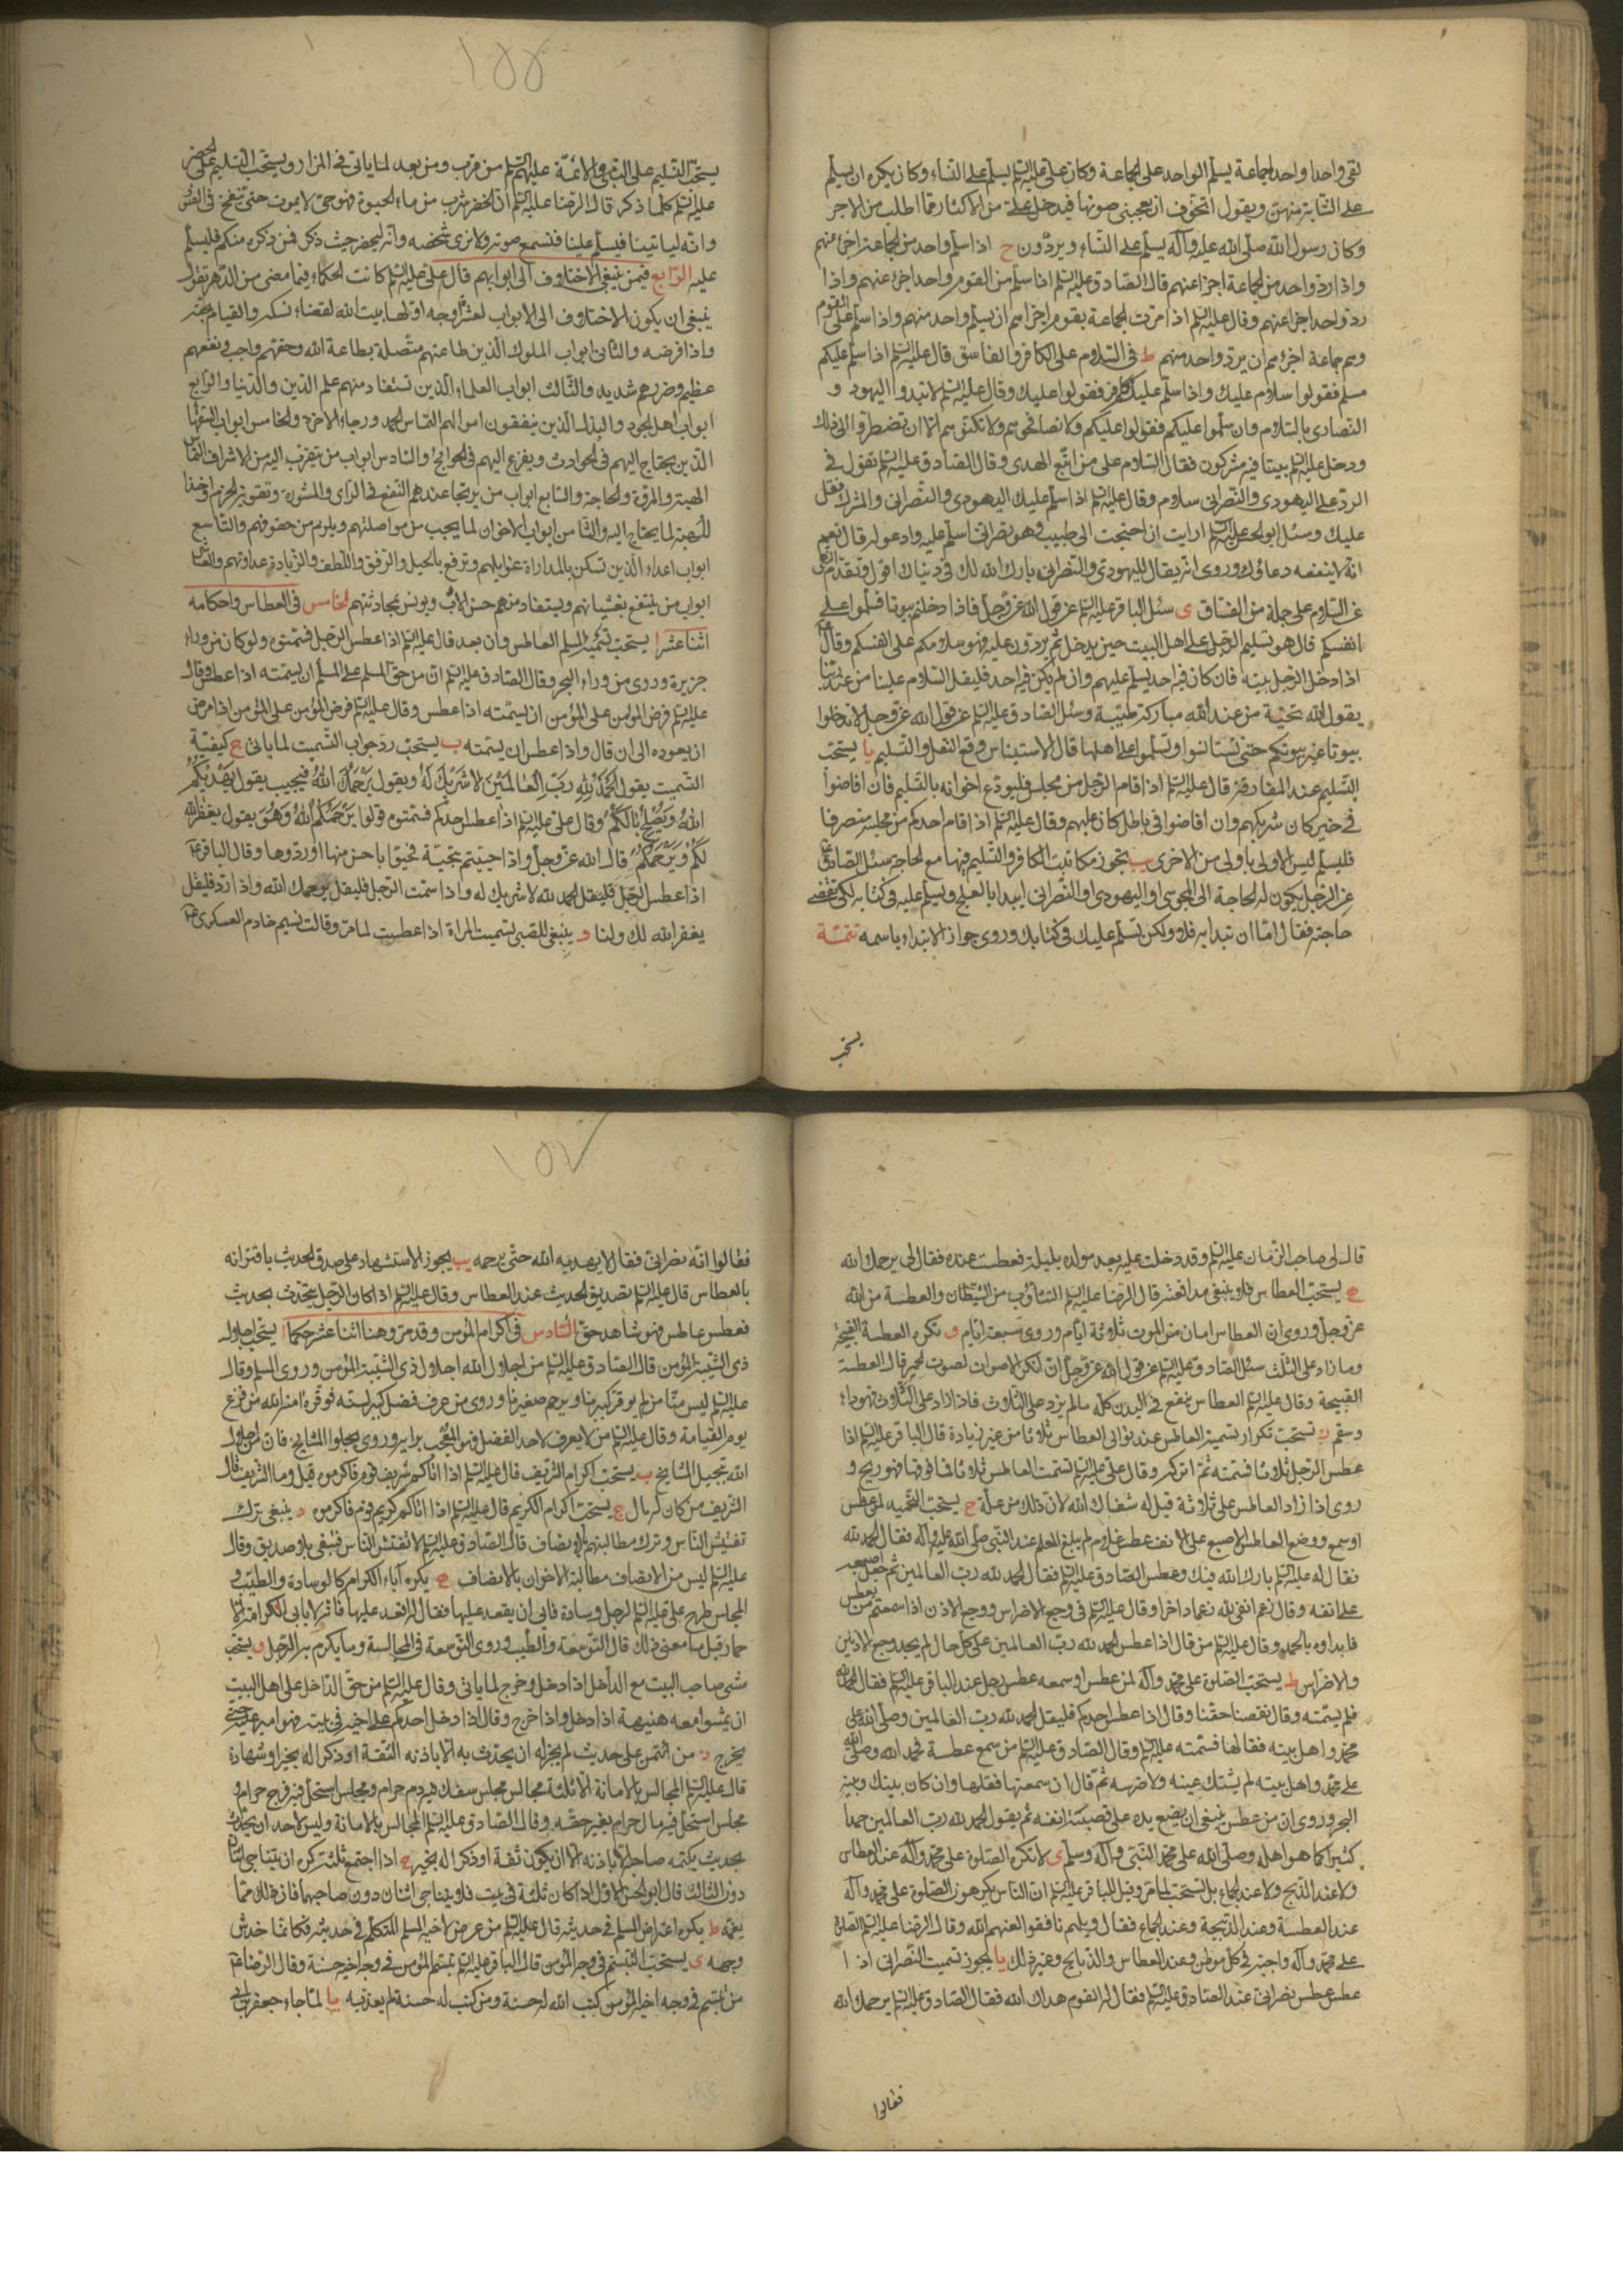 لقى واحدا واحد جماعة يسلّم الواحد على الجماعة وكان علىّ عليه السّلم يسلّم على النّساء وكان يكره ان يسلّم
على الشّابة منهنّ ويقول اتخوّف ان يعجبنى صوتها فيدخل علىّ من الاكثار ممّا اطلب من الاجر
وكان رسول الله صلّى الله عليه وآله يسلّم على النّساء ويرددون ح اذا سلّم واحد من الجماعة اجزء عنهم
واذا ردّ واحد من الجماعة اجزا عنهم قال الصّادق عليه السّلم اذا سلّم من القوم واحد اجزء عنهم واذا
ردّ واحد اجزا عنهم وقال عليه السّلم اذا مرّت الجماعة بقوم اجزاهم ان يسلّم واحد منهم واذا سلّم على القوم
وهم جماعة اجزءهم ان يردّ واحد منهم ط فى السّلام على الكافر والفاسق قال عليه السّلم اذا سلّم عليكم
مسلم فقولوا سلام عليك واذا سلّم عليكم كافر فقولوا عليك وقال عليه السّلم لا تبدوا اليهود و
النّصارى بالسّلام وان سلّموا عليكم فقولوا عليكم ولا تصافحوهم ولا تكنّوهم الّا ان تضطرّوا الى ذلك
ودخل عليه السّلم بيتا فيه مشركون فقال السّلام على من اتّبع الهدى وقال الصّادق عليه السّلم تقول فى
الردّ على اليهودى والنّصرانى سلام وقال عليه السّلم اذا سلّم عليك اليهودى والنّصرانى والمشرك فقل
عليك وسئل ابو الحسن عليه السّلم ارايت ان احتجت الى طبيب وهو نصرانى اسلّم عليه وادعو له قال نعم
انّه لا ينفعه دعاؤك وروى انّه يقال لليهودى والنّصرانى بارك الله لك فى دنياك اقول وتقدّم النّهى
عن السّلام على جملة من الفسّاق ى سئل الباقر عليه السّلم عن قول الله عزّ وجلّ فاذا دخلتم بيوتا فسلّموا على
انفسكم قال هو تسليم الرّجل على اهل البيت حين يدخل ثم يردّون عليه فهو سلامكم على انفسكم وقال
اذا دخل الرّجل بيته فان كان فيه احد يسلّم عليهم وان لم يكن فيه احد فليقل السّلام علينا من عند ربّنا
يقول الله تحيّة من عند الله مباركة طيّبة وسئل الصّادق عليه السّلم عن قول الله عزّ وجلّ لا تدخلوا
بيوتا غير بيوتكم حتى تستانسوا وتسلّموا على اهلها قال الاستيناس وقع النّعل والتّسليم يا يستحبّ
التّسليم عند المفارقة قال عليه السّلم اذا قام الرّجل من مجلس فليودّع اخوانه بالتّسليم فان افاضوا
فى خير كان شريكهم وان افاضوا فى باطل كان عليهم وقال عليه السّلم اذا قام احدكم من مجلسه منصرفا
فليسلّم ليس الاولى باولى من الاخرى يب تجوز مكاتبة الكافر والتّسليم فيها مع الحاجة سئل الصّادق
عن الرّجل يكون له الحاجة الى المجوسى او اليهودى او النّصرانى ايبدا بالعلج ويسلّم عليه فى كتابه لكى تقضى
حاجته فقال امّا ان تبدا به فلا ولكن تسلّم عليك فى كتابك وروى جواز الابتداء باسمه تتمّة
يستحب
١٥٥
يستحبّ التّسليم على النّبى والائمّة عليهم السّلم من قرب ومن بعد لما ياتى فى المزار ويستحبّ التّسليم على الخضر
عليه السّلم كلّما ذكر قال الرّضا عليه السّلم انّ الخضر شرب من ماء الحيوة فهو حىّ لا يموت حتى ينفخ فى الصّور
وانّه لياتينا فيسلّم علينا فنسمع صوته ولا نرى شخصه وانّه ليحضر حيث ذكر فمن ذكره منكم فليسلّم
عليه الرّابع فيمن ينبغى الاختلاف الى ابوابهم قال علىّ عليه السّلم كانت الحكماء فيما مضى من الدّهر تقول
ينبغى ان يكون الاختلاف الى الابواب لعشرة اوجه اوّلها بيت الله لقضاء نسكه والقيام بحقّه
واداء فرضه والثّانى ابواب الملوك الّذين طاعتهم متّصلة بطاعة الله وحقّهم واجب ونفعهم
عظيم وضررهم شديد والثّالث ابواب العلماء الّذين تستفاد منهم علم الدّين والدّنيا والرّابع
ابواب اهل الجود والبذل الّذين ينفقون اموالهم التماس الحمد ورجاء الاخرة والخامس ابواب السّفهاء
الّذين يحتاج اليهم فى الحوادث ويفزع اليهم فى الحوائج والسّادس ابواب من يتقرّب اليه من الاشراف لالتماس
الهبة والمروّة والحاجة والسّابع ابواب من يرتجا عندهم النّفع فى الرّاى والمشورة وتقوية الحزم واخذ
الاهبة لما يحتاج اليه والثّامن ابواب الاخوان لما يجب من مواصلتهم ويلزم من حقوقهم والتّاسع
ابواب اعداء الّذين تسكن بالمداراة غوايلهم وتدفع بالحيل والرّفق واللّطف والزّيادة عداوتهم والعاشر
ابواب من ينتفع بغشيانهم ويستفاد منهم حسن الادب ويونس بمحادثتهم الخامس فى العطاس واحكامه
اثنا عشر ا يستحبّ تسميت المسلم العاطس وان بعد قال عليه السّلم اذا عطس الرّجل فسمّتوه ولو كان من وراء
جزيرة وروى من وراء البحر وقال الصّادق عليه السّلم انّ من حقّ المسلم على المسلم ان يسمّته اذا عطس وقال
عليه السّلم فرض المؤمن على المؤمن ان يسمّته اذا عطس وقال عليه السّلم فرض المؤمن على المؤمن اذا مرض
ان يعوده الى ان قال واذا عطس ان يسمّته ب يستحبّ ردّ جواب التّسميت لما ياتى ج كيفيّة
التّسميت يقول الحمد لله ربّ العالمين لا شريك له ويقول يرحمك الله فيجيب يقول يهديكم
الله ويصلح بالكم وقال علىّ عليه السّلم اذا عطس احدكم فسمّتوه قولوا يرحمكم الله وهو يقول يغفر الله
لكم ويرحمكم قال الله عزّ وجلّ واذا حيّيتم بتحيّة فحيّوا باحسن منها او ردّوها وقال الباقر
اذا عطس الرّجل فليقل الحمد لله لا شريك له واذا سمّت الرّجل فليقل يرحمك الله واذا ردّ فليقل
يغفر الله لك ولنا د ينبغى للصّبى تسميت المراة اذا عطست لما مرّ وقالت نسيم خادم العسكرى
قال لى صاحب الزّمان عليه السّلم وقد دخلت عليه بعد مولده بليلة فعطست عنده فقال لى يرحمك الله
ه يستحبّ العطاس فلا ينبغى مدافعته قال الرّضا عليه السّلم التثاؤب من الشّيطان والعطسة من الله
عزّ وجلّ وروى انّ العطاس امان من الموت ثلاثة ايّام وروى سبعة ايّام و تكره العطسة القبيحة
وما زاد على الثّلث سئل الصّادق عليه السّلم عن قول الله عزّ وجلّ انّ انكر الاصوات لصوت الحمير قال العطسة
القبيحة وقال عليه السّلم العطاس ينفع فى البدن كلّه مالم يزد على الثّلاث فاذا زاد على الثّلاث فهو داء
وسقم ز تستحبّ تكرار تسمية العاطس عند توالى العطاس ثلاثا من غير زيادة قال الباقر عليه السّلم اذا
عطس الرّجل ثلاثا فسمّته ثمّ اتركه وقال علىّ عليه السّلم تسمّت العاطس ثلاثا فما فوقها فهو ريح و
روى اذا زاد العاطس على ثلاثة قيل له شفاك الله لانّ ذلك من علّة ح يستحبّ التّحميد لمن عطس
او سمع ووضع العاطس الاصبع على الانف عطس غلام لم يبلغ الحلم عند النّبى صلّى الله عليه وآله فقال الحمد لله
فقال له عليه السّلم بارك الله فيك وعطس الصّادق عليه السّلم فقال الحمد لله ربّ العالمين ثم جعل اصبعه
على انفه وقال رغم انفى لله رغما داخرا وقال عليه السّلم فى وجع الاضراس ووجع الاذن اذا سمعتم من يعطس
فابداوه بالحمد وقال عليه السّلم من قال اذا عطس الحمد لله ربّ العالمين على كلّ حال لم يجد وجع الاذنين
والاضراس ط يستحبّ الصّلوة على محمّد وآله لمن عطس او سمعه عطس رجل عند الباقر عليه السّلم فقال الحمد لله
فلم يسمّته وقال نقصنا حقّنا وقال اذا عطس احدكم فليقل الحمد لله ربّ العالمين وصلّى الله على
محمّد واهل بيته فقالها فسمّته عليه السّلم وقال الصّادق عليه السّلم من سمع عطسة فحمد الله وصلّى
على محمّد واهل بيته لم يشتك عينه ولا ضرسه ثم قال ان سمعتها فقلها وان كان بينك وبينه
البحر وروى ان من عطس ينبغى ان يضع يده على قصبة انفه ثم يقول الحمد لله ربّ العالمين حمدا
كثيرا كما هو اهله وصلّى الله على محمّد النّبى وآله وسلّم ى لا تكره الصّلوة على محمّد وآله عند العطاس
ولا عند الذّبح ولا عند الجماع بل تستحبّ لما مرّ وقيل للباقر عليه السّلم انّ النّاس يكرهون الصّلوة على محمّد وآله
عند العطسة وعند الذّبيحة وعند الجماع فقال ويلهم نافقوا لعنهم الله وقال الرّضا عليه السّلم الصّلوة
على محمّد وآله واجبة فى كلّ موطن وعند العطاس والذّبايح وغير ذلك يا يجوز تسميت النّصرانى اذا
عطس عطس نصرانى عند الصّادق عليه السّلم فقال له القوم هداك الله فقال الصّادق عليه السّلم يرحمك الله
فقالوا
١٥٧
فقالوا انّه نصرانى فقال لا يهديه الله حتّى يرحمه يب يجوز الاستشهاد على صدق الحديث باقترانه
بالعطاس قال عليه السّلم تصديق الحديث عند العطاس وقال عليه السّلم اذا كان الرّجل يتحدّث بحديث
فعطس عاطس فهو شاهد حقّ السّادس فى اكرام المؤمن وقد مرّ وهنا اثنا عشر حكما ا يستحبّ اجلال
ذى الشّيبة المؤمن قال الصّادق عليه السّلم من اجلال الله اجلال ذى الشّيبة المؤمن وروى المسلم وقال
عليه السّلم ليس منّا من لم يوقّر كبيرنا ويرحم صغيرنا وروى من عرف فضل كبير لسنّه فوقّره امنه الله من فزع
يوم القيامة وقال عليه السّلم من لا يعرف لاحد الفضل فهو المعجب برايه وروى بجّلوا المشايخ فانّ من اجلال
الله تبجيل المشايخ ب يستحبّ اكرام الشّريف قال عليه السّلم اذا اتاكم شريف قوم فاكرموه قيل وما الشّريف قال
الشّريف من كان له مال ج يستحبّ اكرام الكريم قال عليه السّلم اذا اتاكم كريم قوم فاكرموه د ينبغى ترك
تفتيش النّاس وترك مطالبتهم بالانصاف قال الصّادق عليه السّلم لا تفتّش النّاس فتبقى بلا صديق وقال
عليه السّلم ليس من الانصاف مطالبة الاخوان بالانصاف ه يكره اباء الكرام كالوسادة والطّيب و
المجلس طرح علىّ عليه السّلم لرجل وسادة فابى ان يقعد عليها فقال له اقعد عليها فانّه لا يابى الكرامة الّا
حمار قيل ما معنى ذلك قال التّوسعة والطّيب وروى التّوسعة فى المجالسة وما يكرم به الرّجل و يستحبّ
مشى صاحب البيت مع الدّاخل اذا دخل وخرج لما ياتى وقال عليه السّلم من حقّ الدّاخل على اهل البيت
ان يمشوا معه هنيهة اذا دخل واذا خرج وقال اذا دخل احدكم على اخيه فى بيته فهو امير عليه حتى
يخرج ز من ائتمن على حديث لم يجز له ان يحدّث به الّا باذنه الثّقة او ذكرا له بخير او شهادة
قال عليه السّلم المجالس بالامانة الّا ثلثة مجالس مجلس سفك فيه دم حرام ومجلس استحلّ فيه فرج حرام و
مجلس استحلّ فيه مال حرام بغير حقّه وقال الصّادق عليه السّلم المجالس بالامانة وليس لاحد ان يحدّث
بحديث يكتمه صاحبه الّا باذنه الّا ان يكون ثقة او ذكرا له بخير ح اذا اجتمع ثلثة كره ان يتناجى اثنان
دون الثّالث قال ابو الحسن الاوّل اذا كان ثلثة فى بيت فلا يتناجى اثنان دون صاحبهما فانّ ذلك ممّا
يغمّه ط يكره اعتراض المسلم فى حديثه قال عليه السّلم من عرض لاخيه المسلم المتكلّم فى حديثه فكانّما خدش
وجهه ى يستحبّ التّبسّم فى وجه المؤمن قال الباقر عليه السّلم تبسّم المؤمن فى وجه اخيه حسنة وقال الرّضا
من تبسّم فى وجه اخيه المؤمن كتب الله له حسنة ومن كتب له حسنة لم يعذّبه يا لمّا جاء جعفر بن ابى